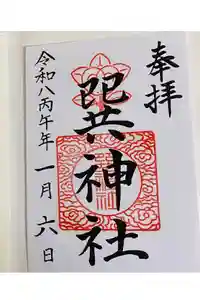 奉拝
巽神社
令和八丙午年 一月六日